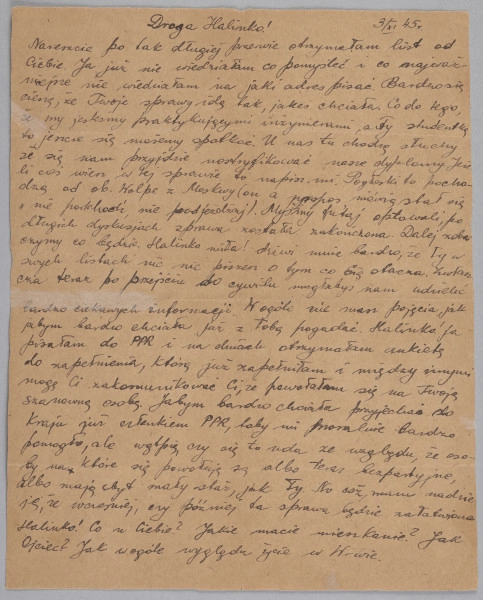 Droga Halinko! 3/XI 45r.
Nareszcie po tak długiej przerwie otrzymałam list od
Ciebie. Ja już nie wiedziałam co pomyśleć i co najważ-
niejsze nie wiedziałam na jaki adres pisać. Bardzo się
cieszę, że Twoje sprawy idą tak, jakeś chciała. Co do tego,
że my jesteśmy praktykującymi inżynierami, a ty studentką
to jeszcze się możemy spotkać. U nas tu chodzą słuchy
że się nam przyjdzie nostryfikować nasze dyplomy. Jeże
li coś wiesz w tej sprawie to napisz mi. Pogłoski te pocho-
dzą od ob. Holpe z Moskwy (on a propos mówiąc stał się
"nie podchodi, nie podjezdżaj). Myśmy tutaj optowali, po
długich dyskusjach sprawa została zakończona. Dalej zoba
czymy co będzie. Halinko miła! Dziwi mnie bardzo, że Ty w
swych listach nic nie piszesz o tym co Cię otacza. Zwłasz-
cza teraz po przejściu do cywila mogłabyś nam udzielić
bardzo ciekawych informacji. W ogóle nie masz pojęcia jak
jabym bardzo chciała już z Tobą pogadać. Halinko! Ja
pisałam do PPR i na dniach otrzymałam ankietę
do zapełnienia, którą już zapełniłam i między innymi
mogę Ci zakomunikować Ci, że powołałam się na Twoją
szanowną osobę. Jabym bardzo chciała przyjechać do
Kraju już członkiem PPR, toby mi moralnie bardzo
pomogło, ale wątpię czy się to uda ze względu, że oso-
by na które się powołuję są albo teraz bezpartyjne,
albo mają zbyt mały staż, jak Ty. No cóż, mam nadzie
ję, że wcześniej, czy później ta sprawa będzie załatwiona
Halinko! Co u Ciebie? Jakie macie mieszkanie? Jak
Ojciec? Jak wogóle wygląda życie w W-wie.